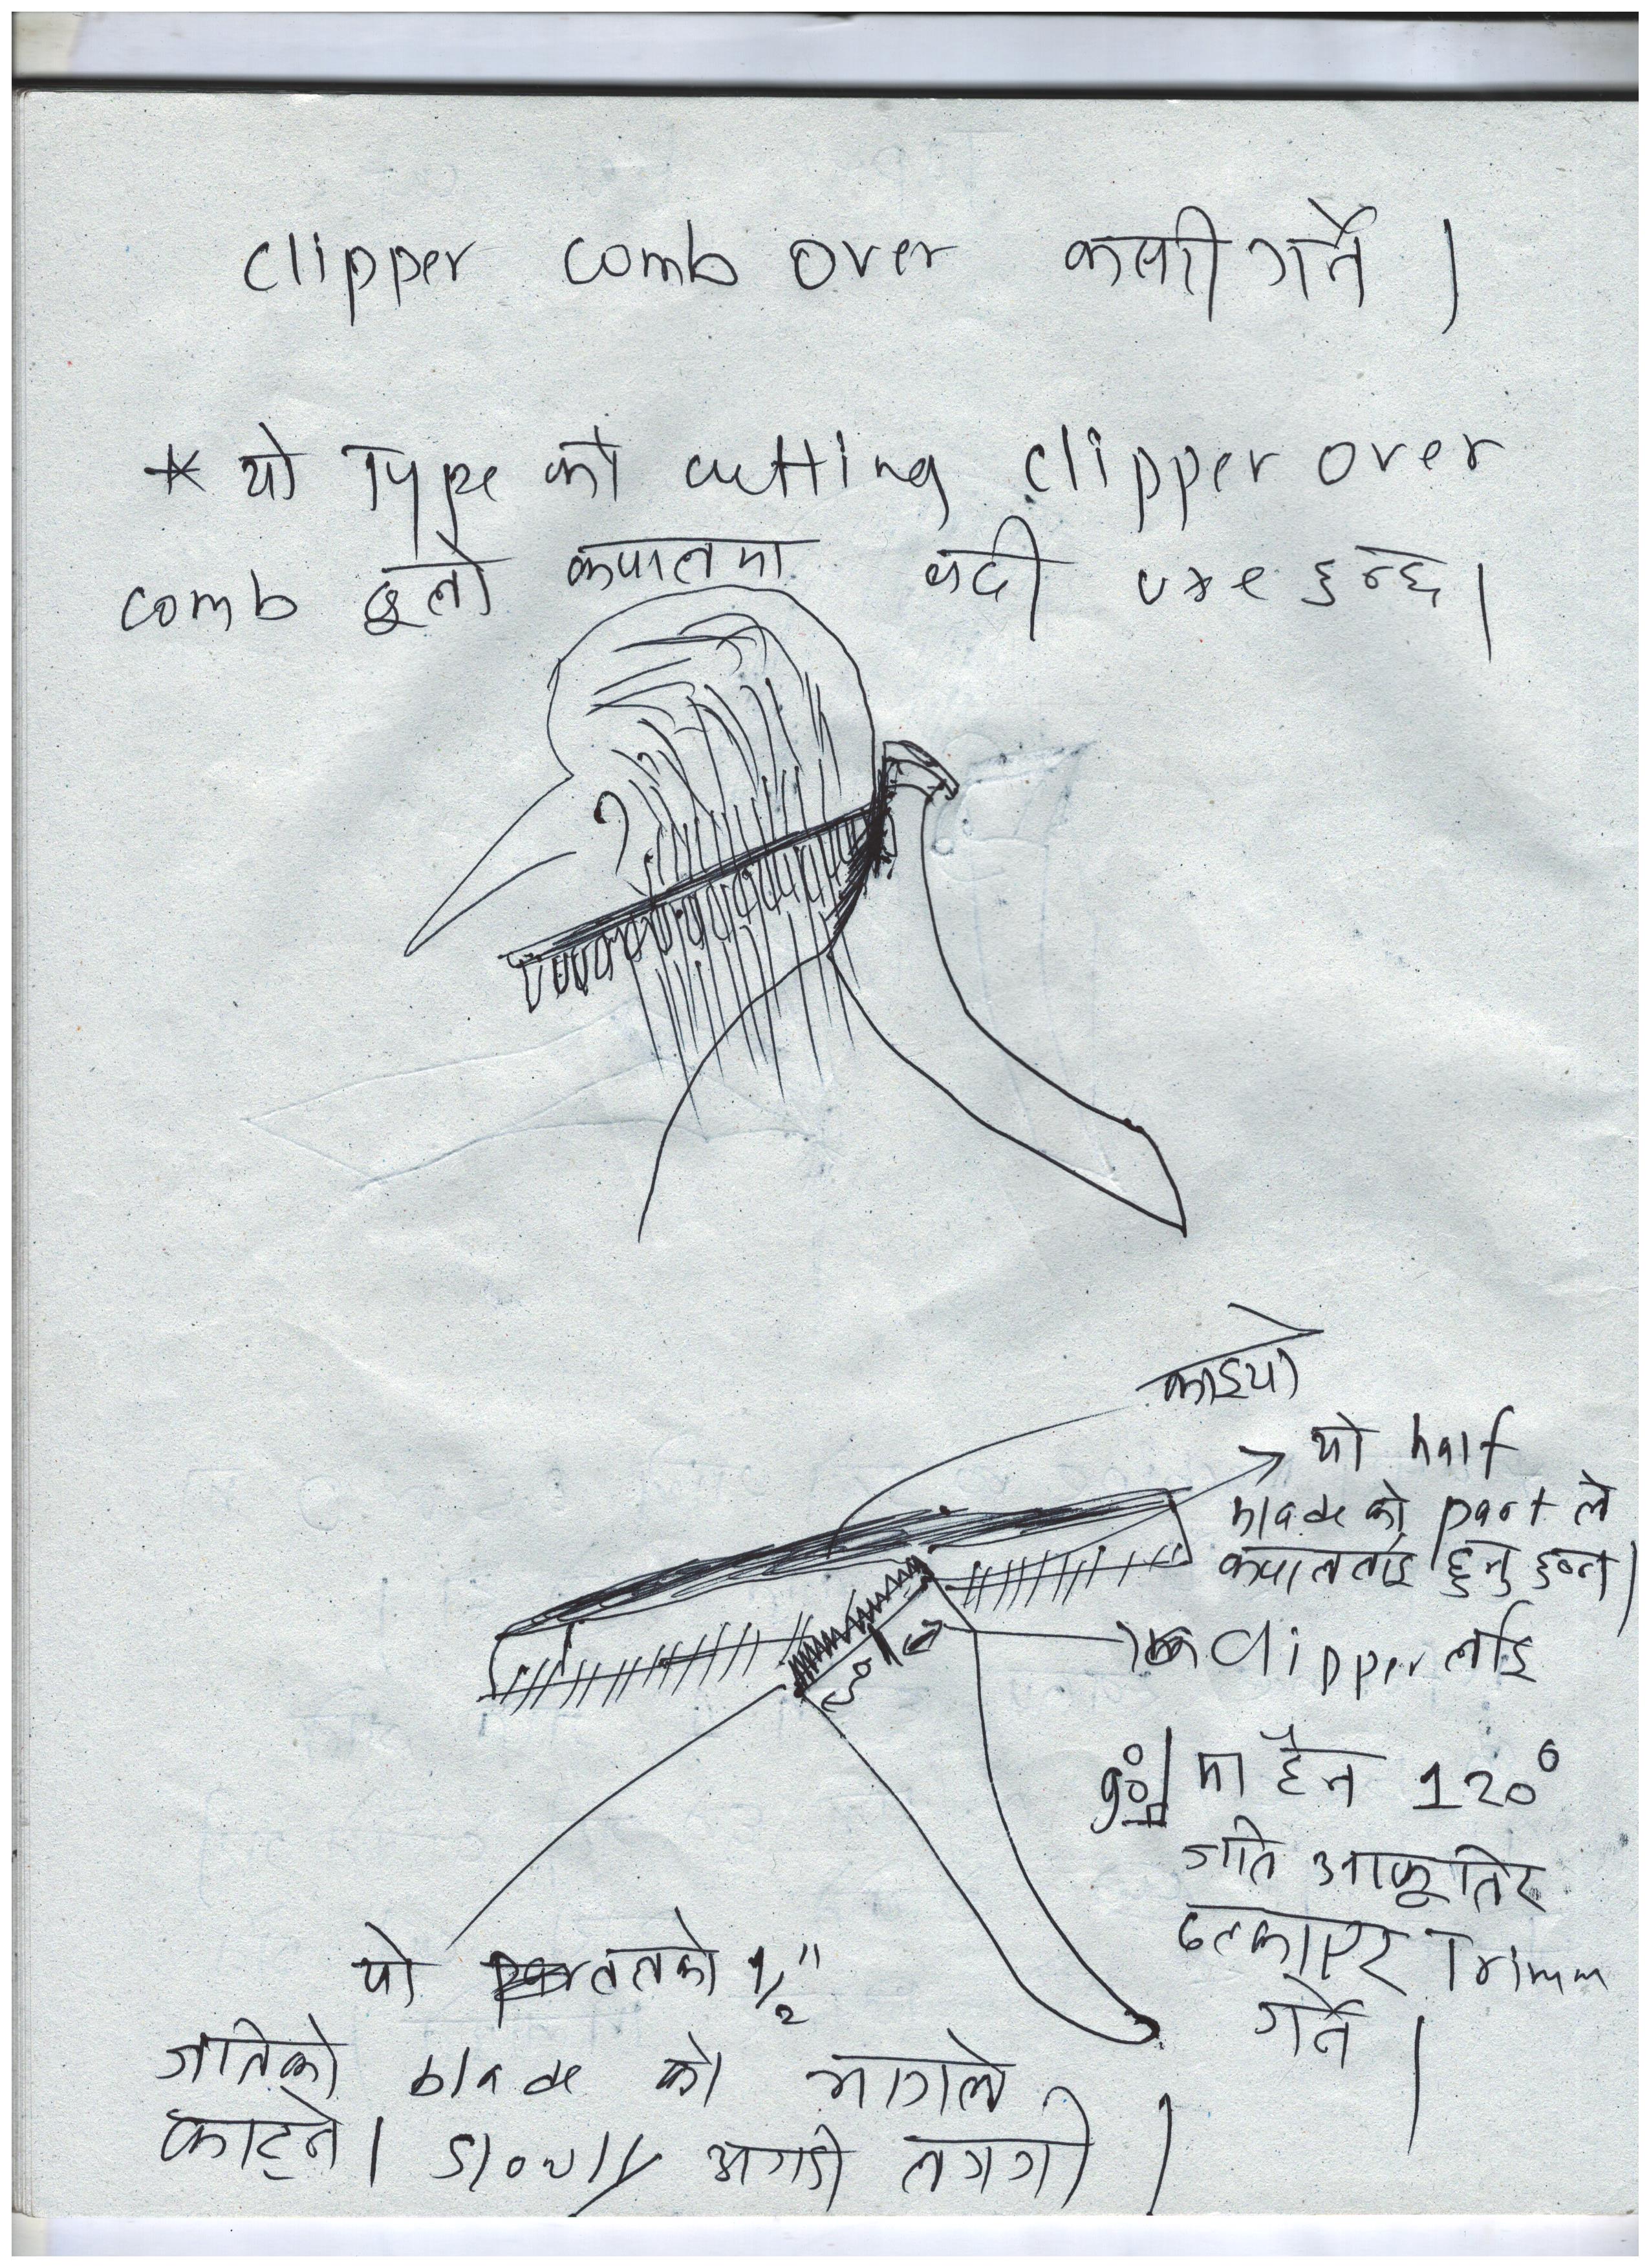 clipper comb over कसरी गर्ने |
* यो Type को cutting clipper over
comb ठूलो कपालमा बढी use हुन्छ |
काइयो
यो half
blade को part ले
कपाललाई छुनु हुन्न |
Clipper लाई
90° मा हैन 120°
जति आफूतिर
ढल्काएर Trimm
गर्ने |
यो तलको 1/2"
जतिको blade को भागले
काट्ने | Slowly अगाडी